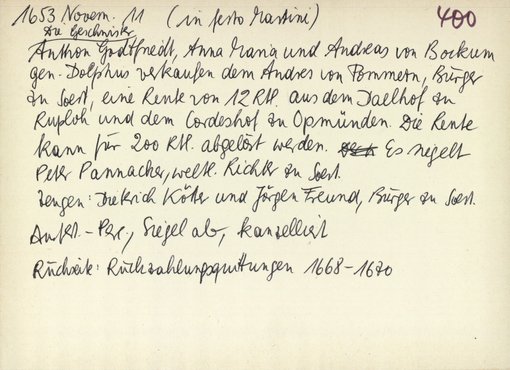 1653 Novem. 11 (in festo Martini) 400
Die Geschwister
Anthon Godtfriedt, Anna Maria und Andreas von Bockum
gen. Dolphus verkaufen dem Andres von Pommern, Bürger
zu Soest, eine Rente von 12 Rtl. aus dem Daelhof zu
Ruploh und dem Cordeshof zu Opmünden. Die Rente
kann für 200 Rtl. abgelöst werden. Es siegelt
Peter Pannacher, weltl. Richter zu Soest.
Zeugen: Dietrich Kötter und Jörgen Freund, Bürger zu Soest.
Ausf. - Perg., Siegel ab, kanzelliert
Rückseite: Rückzahlungsquittungen 1668-1670